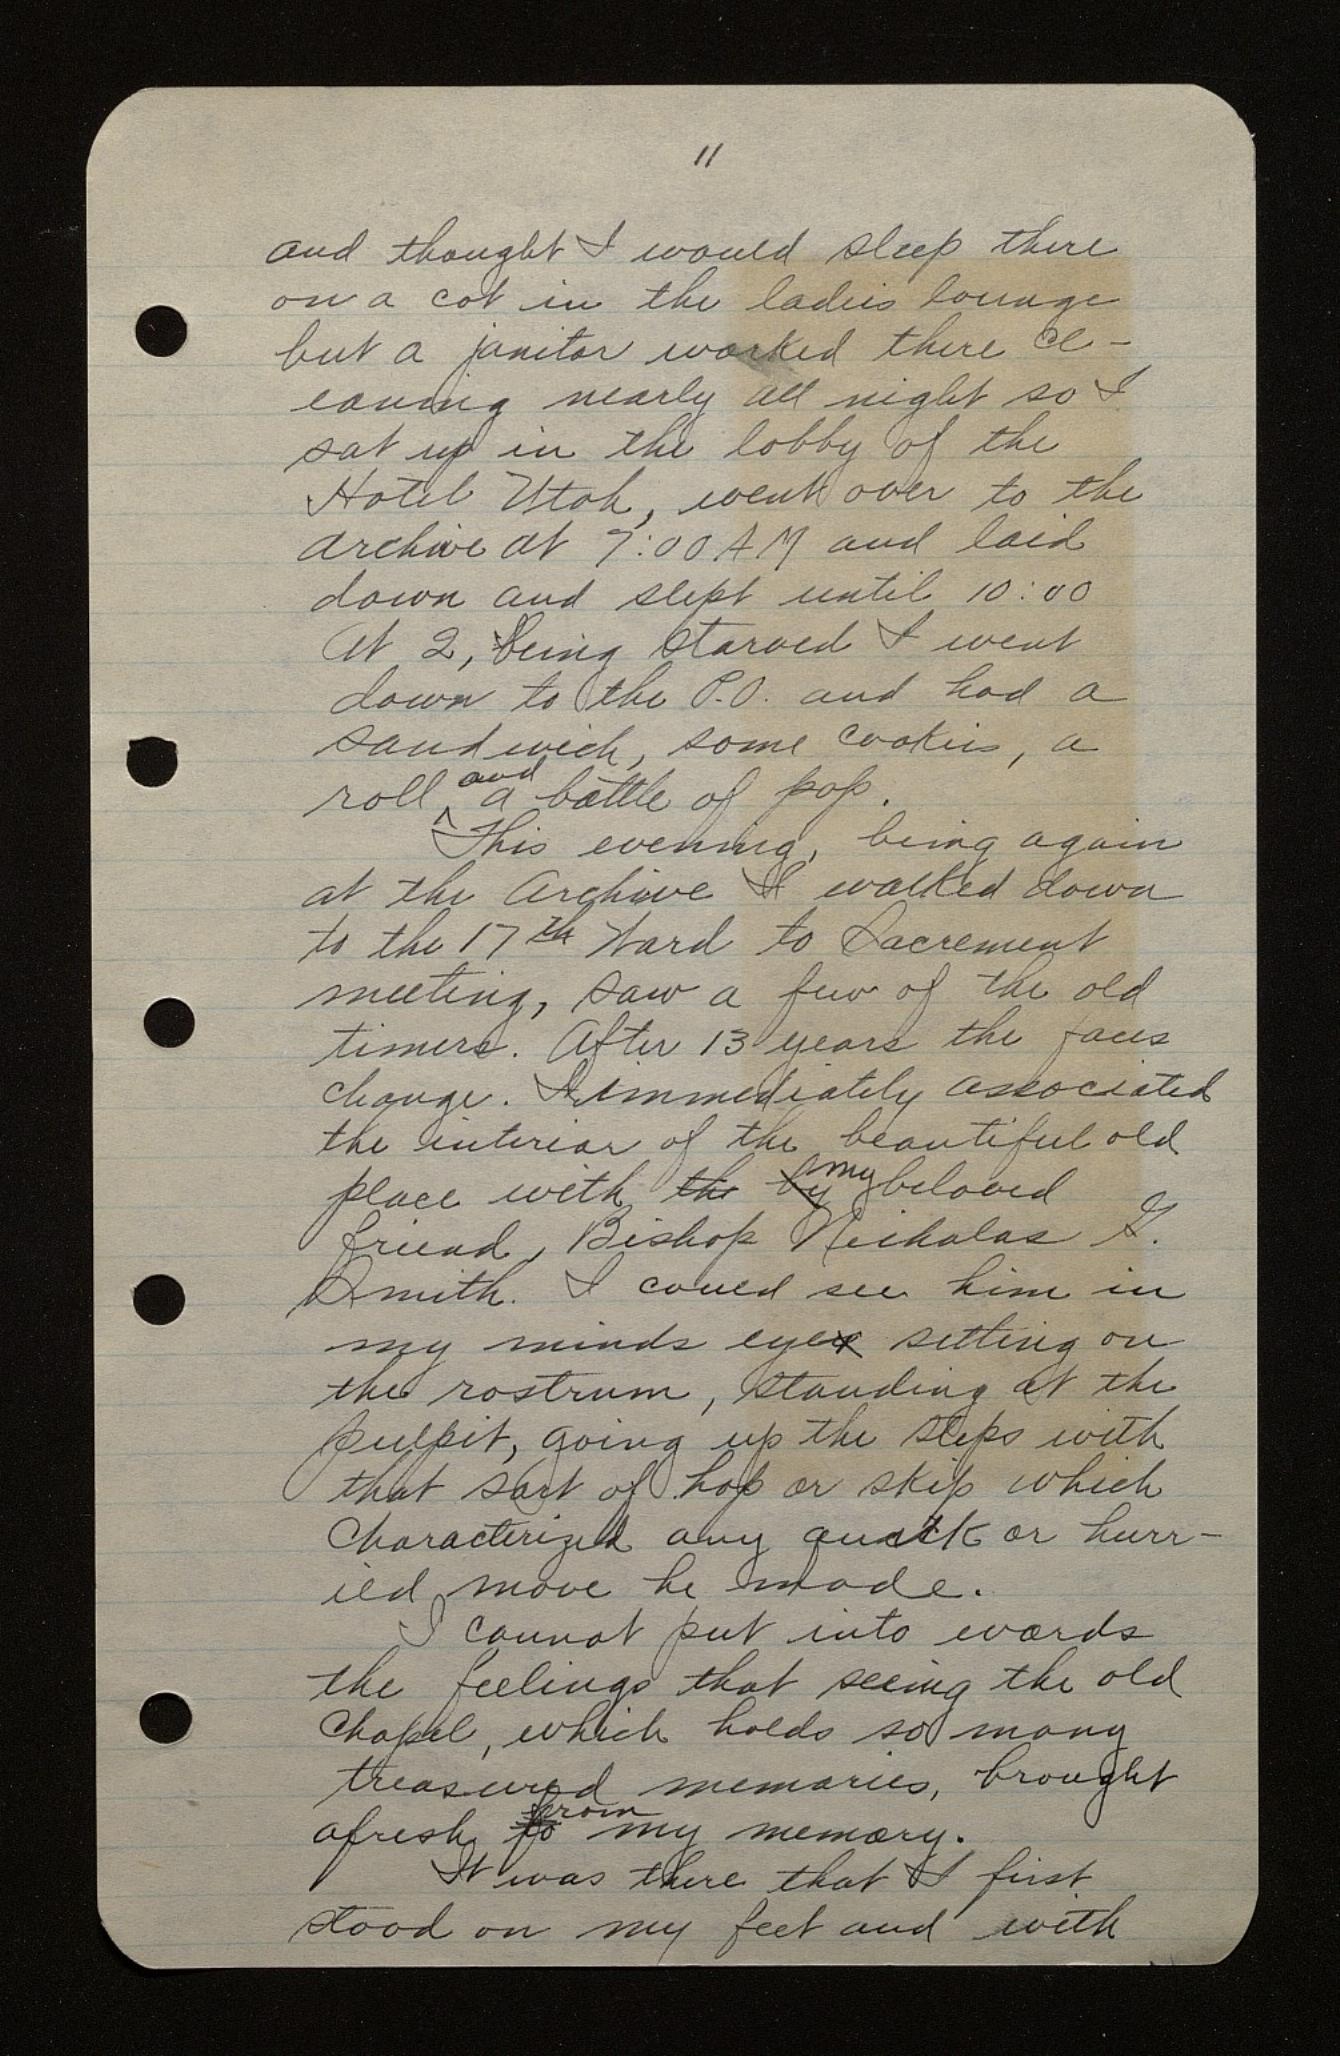 11
and thought I would sleep there
on a cot in the ladies lounge
but a janitor worked there cl-
eaning nearly all night so I
sat up in the lobby of the
Hotel Utah, went over to the
archive at 7:00 AM and laid
down and slept until 10:00
At 2, being starved I went
down to the P.O. and had a
sandwich, some cookies, a
roll, and a bottle of pop.
This evening, being again
at the Archive I walked down
to the 17th Ward to Sacrement
meeting, saw a few of the old
timers. After 13 years the faces
change. I immediately associated
the interior of the beautiful old
place with the by my beloved
friend, Bishop Nicholas G.
Smith. I could see him in
my minds eye sitting on
the rostrum, standing at the
pulpit, going up the steps with
that sort of hop or skip which
characterized any quick or hurr-
ied move he made.
I cannot put into words
the feelings that seeing the old
Chapel, which holds so many
treasured memories, brought
afresh to from my memory.
It was there that I first
stood on my feet and with